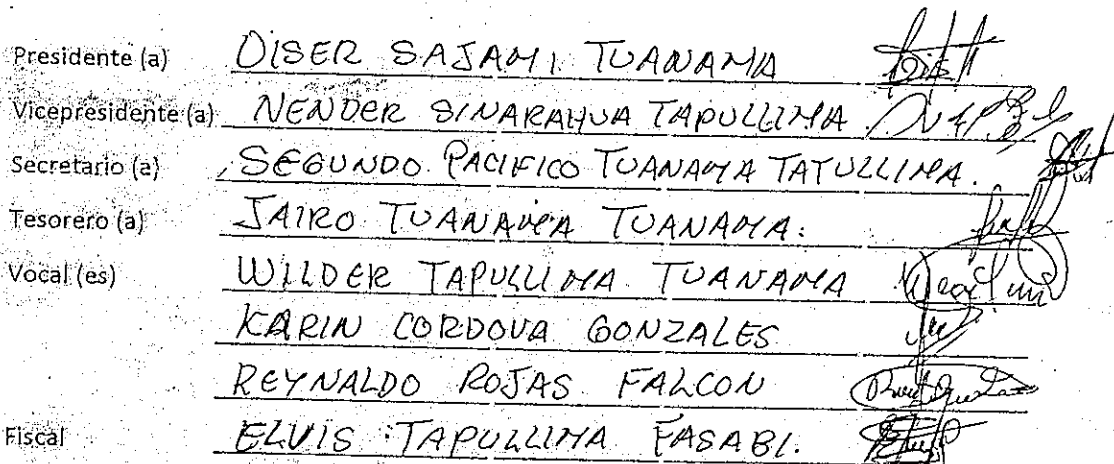 Presidente (a) OISER SAJAMI TUANAMA
Vicepresidente (a) NENDER SINARAHUA TAPULLIMA
Secretario (a) SEGUNDO PACIFICO TUANAMA TATULLIMA.
Tesorero (a) JAIRO TUANAMA TUANAMA.
Vocal (es) WILDER TAPULLIMA TUANAMA
KARIN CORDOVA GONZALES
REYNALDO ROJAS FALCON
Fiscal ELVIS TAPULLIMA FASABI.